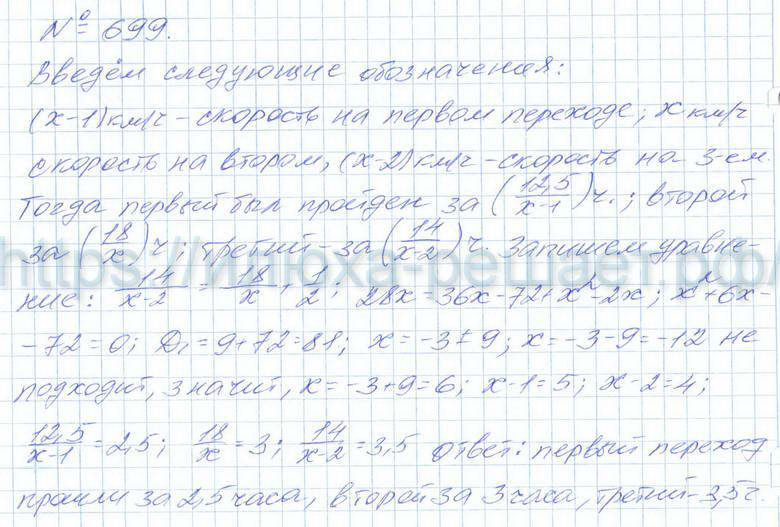 № 699.
Введём следующие обозначения:
(x-1) км/ч - скорость на первом переходе; x км/ч
скорость на втором, (x-2) км/ч - скорость на 3-ем.
Тогда первый был пройден за (12,5/(x-1)) ч.; второй
за (18/x) ч; третий - за (14/(x-2)) ч. Запишем уравне-
ние: 14/(x-2) = 18/x + 1/2; 28x = 36x - 72 + x² - 2x; x² + 6x -
- 72 = 0; D₁ = 9 + 72 = 81; x = -3 ± 9; x = -3 - 9 = -12 не
подходит, значит, x = -3 + 9 = 6; x - 1 = 5; x - 2 = 4;
12,5/(x-1) = 2,5; 18/x = 3; 14/(x-2) = 3,5 Ответ: первый переход
прошли за 2,5 часа, второй за 3 часа, третий - 3,5 ч.
https://илюха-решает.рф/